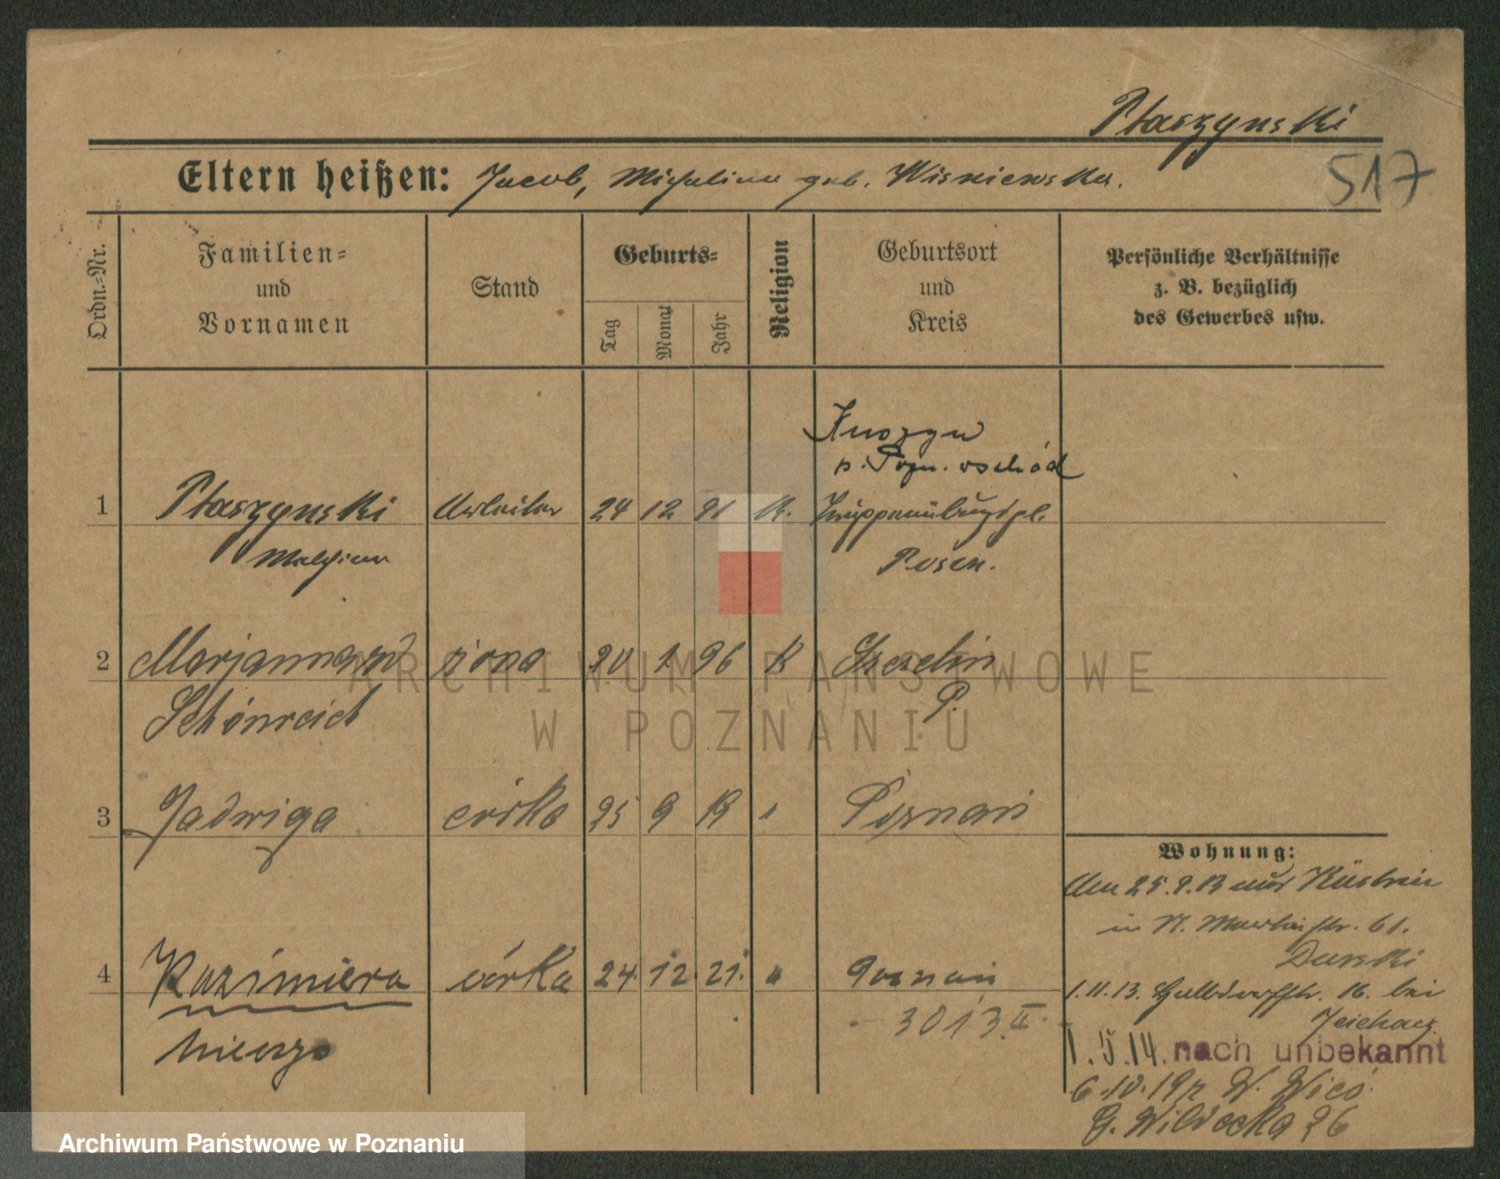 Ptaszynski
517
Eltern heißen: Jacob, Michalina geb. Wisniewska.
Ordn.-Nr.
Familien-
und
Vornamen
Stand
Geburts-
Tag
Monat
Jahr
Religion
Geburtsort
und
Kreis
Persönliche Verhältnisse
z. B. bezüglich
des Gewerbes usw.
p. Pozn. wschód
1 Ptaszynski Arbeiter 24 12 91 K.
Posen.
2 Marjanna żona 20 1 96 K
Schönreich P.
3 Jadwiga córka 25 9 19 " Poznań
Wohnung:
Am 25.9.13 aus Küstrin
in
4 Kazimiera córka 24. 12. 21. " Poznań
Danski
1.11.13. 16. bei
3013 II
1.5.14. nach unbekannt
6.10.19
26
ARCHIWUM PAŃSTWOWE
W POZNANIU
Archiwum Państwowe w Poznaniu